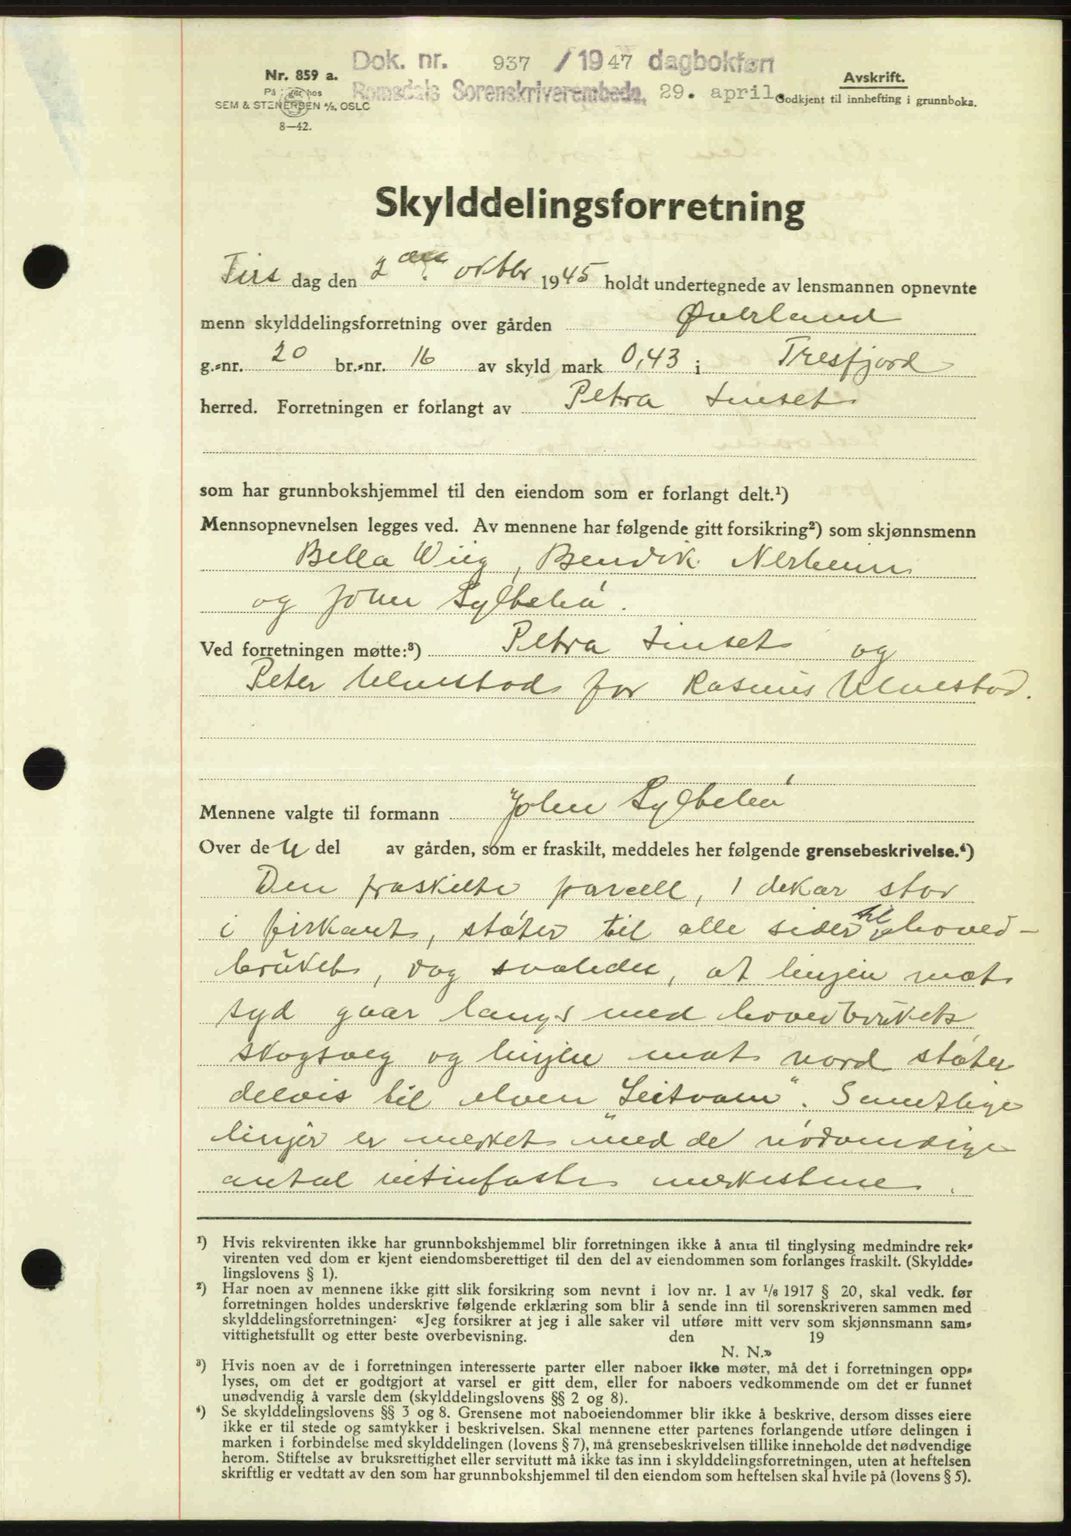 Dok. nr. 937 / 1947 dagbokført
Romsdals Sorenskriverembede, 29. april.
Nr. 859 a.
På lager hos
SEM & STENERSEN A/S, OSLO
8—42.
Avskrift.
Godkjent til innhefting i grunnboka.
Skylddelingsforretning
Tirs dag den 2 oktbr 1945 holdt undertegnede av lensmannen opnevnte
menn skylddelingsforretning over gården Øverland
g.-nr. 20 br.-nr. 16 av skyld mark 0,43 i Tresfjord
herred. Forretningen er forlangt av Petra Linset
som har grunnbokshjemmel til den eiendom som er forlangt delt.¹)
Mennsopnevnelsen legges ved. Av mennene har følgende gitt forsikring²) som skjønnsmenn
Bella Wiig, Bendik Nerheim
og John Syltebø.
Ved forretningen møtte:³) Petra Linset og
Peter Ulvestad for Rasmus Ulvestad.
Mennene valgte til formann John Syltebø
Over de n del av gården, som er fraskilt, meddeles her følgende grensebeskrivelse.⁴)
Den fraskilte parcell, 1 dekar stor
i firkant, støter til alle sider til hoved-
brukets, dog saaledes, at linjen mot
syd gaar langs med hovedbrukets
skogsveg og linjen mot nord støter
delvis til elven "Leitvam". Samtlige
linjer er merket med de nødvendige
antal nedinfaste merkestene.
¹) Hvis rekvirenten ikke har grunnbokshjemmel blir forretningen ikke å anta til tinglysing medmindre rek-
virenten ved dom er kjent eiendomsberettiget til den del av eiendommen som forlanges fraskilt. (Skyldde-
lingslovens § 1).
²) Har noen av mennene ikke gitt slik forsikring som nevnt i lov nr. 1 av 1/6 1917 § 20, skal vedk. før
forretningen holdes underskrive følgende erklæring som blir å sende inn til sorenskriveren sammen med
skylddelingsforretningen: «Jeg forsikrer at jeg i alle saker vil utføre mitt verv som skjønnsmann sam-
vittighetsfullt og etter beste overbevisning. den 19
N. N.»
³) Hvis noen av de i forretningen interesserte parter eller naboer ikke møter, må det i forretningen opp-
lyses, om det er godtgjort at varsel er gitt dem, eller for naboers vedkommende om det er funnet
unødvendig å varsle dem (skylddelingslovens §§ 2 og 8).
⁴) Se skylddelingslovens §§ 3 og 8. Grensene mot naboeiendommer blir ikke å beskrive, dersom disses eiere
ikke er til stede og samtykker i beskrivelsen. Skal mennene etter partenes forlangende utføre delingen i
marken i forbindelse med skylddelingen (lovens § 7), må grensebeskrivelsen tillike inneholde det nødvendige
herom. Stiftelse av bruksrettighet eller servitutt må ikke tas inn i skylddelingsforretningen, uten at heftelsen
skriftlig er vedtatt av den som har grunnbokshjemmel til den eiendom som heftelsen skal hvile på (lovens § 5).